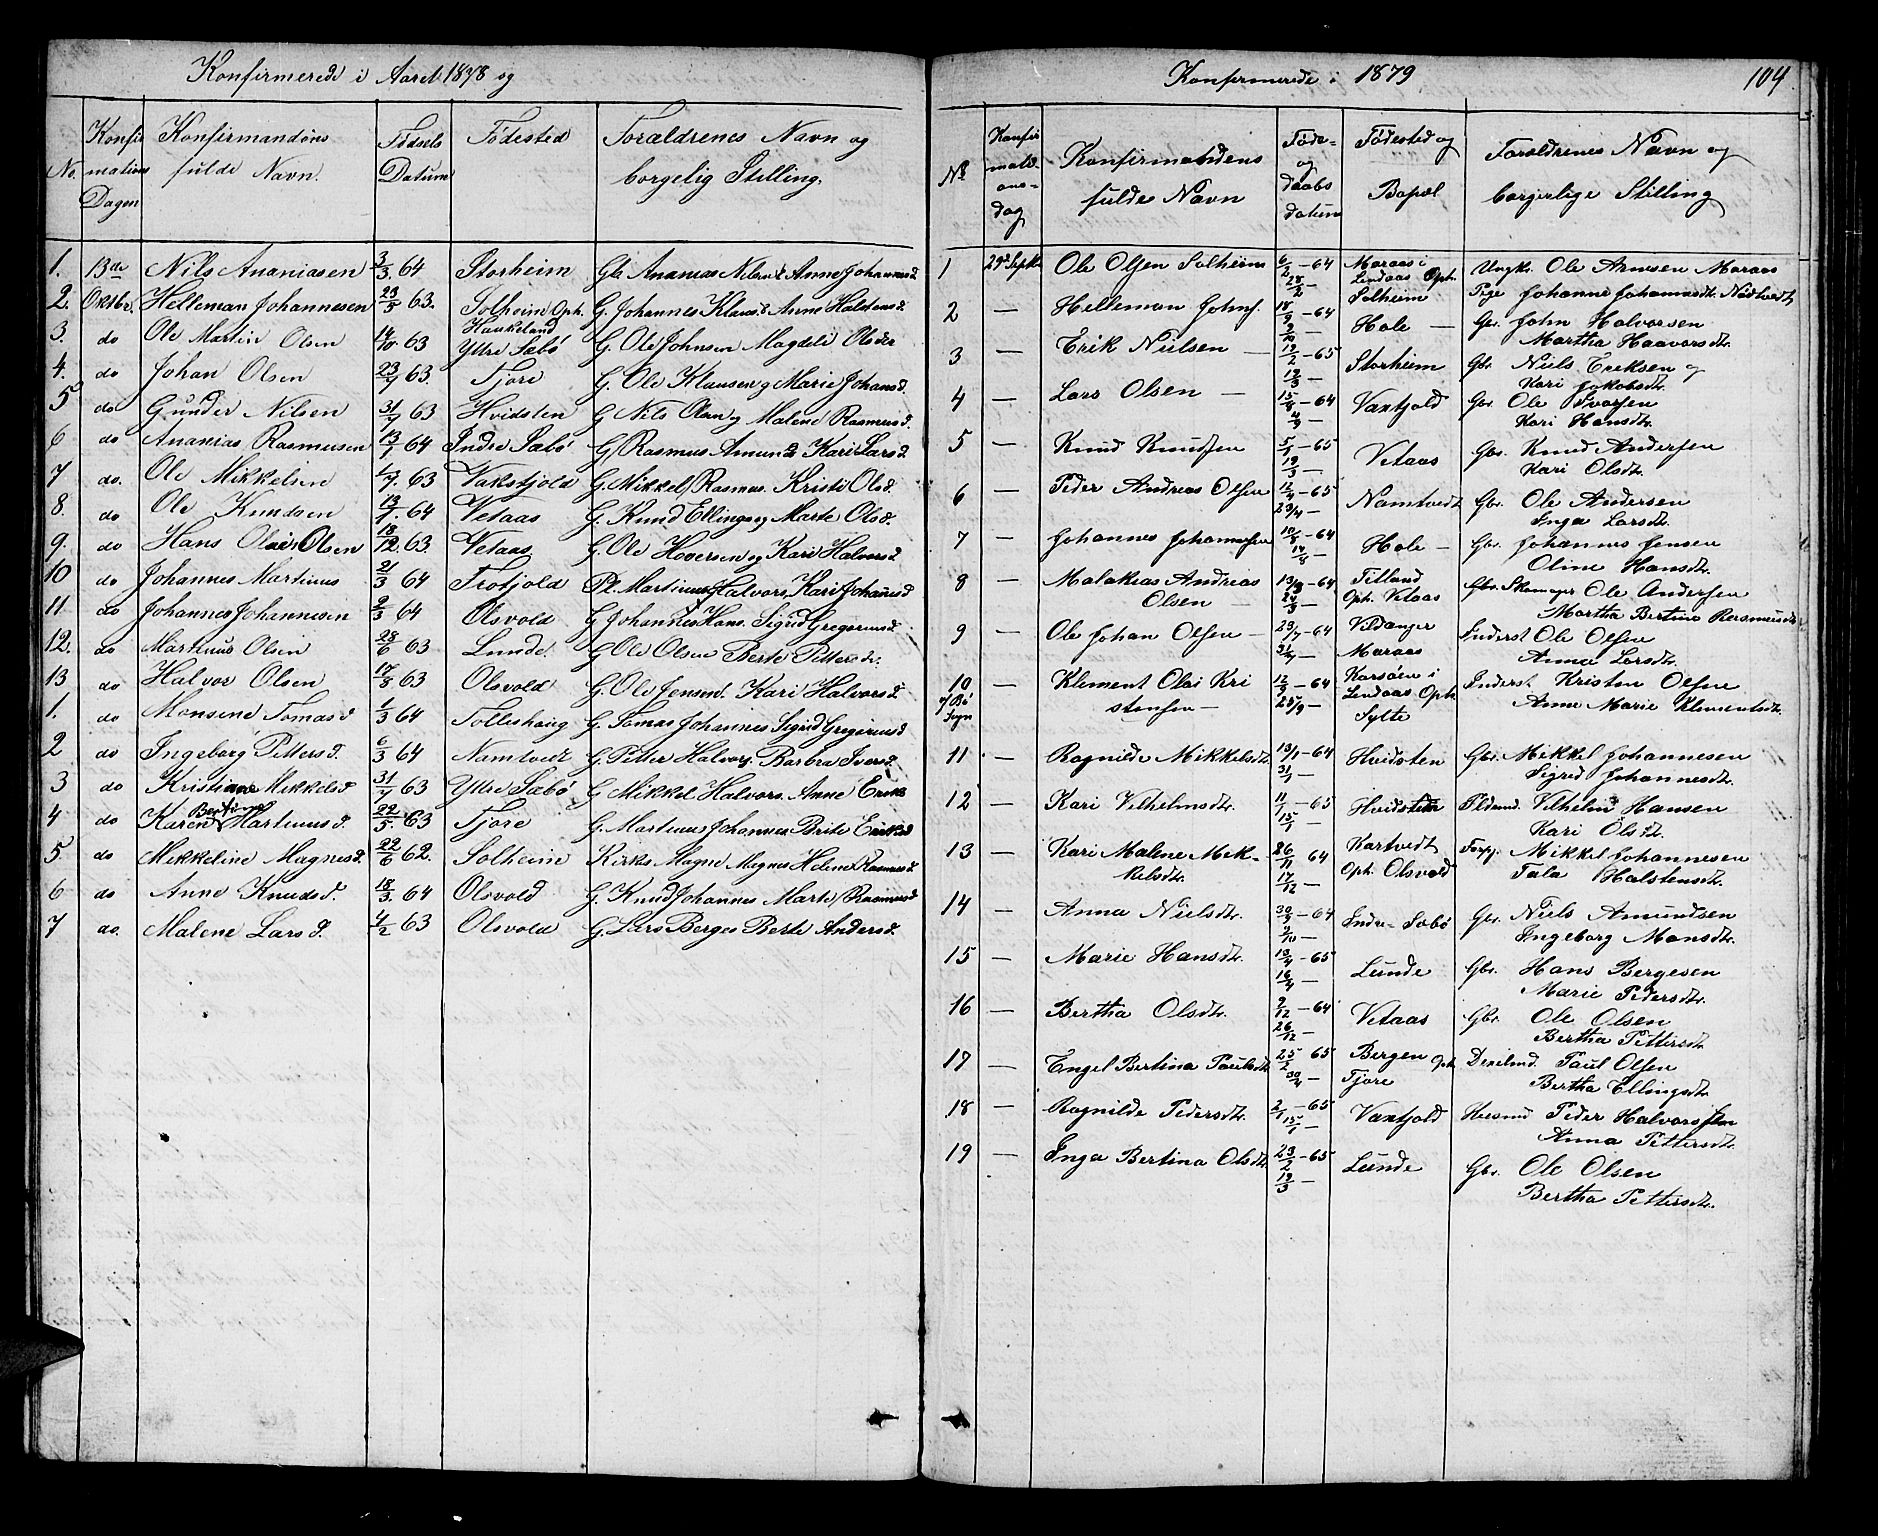 Konfirmerede i Aaret 1878 og
No. Konfirmations Dagen Konfirmandens fulde Navn. Fødsels Datum Fødested Forældrenes Navn og borgelig Stilling.
1. 13de Nils Ananiasen 3/3 64 Storheim Gb Ananias Nilsen & Anne Johannesd.
2. Oktbr. Helleman Johannesen 23/5 63. Solheim Oph. Haukeland G. Johannes Klaus. & Anne Halstensd.
3. do Ole Martin Olsen 14/10 63 Yttre Sæbö G. Ole Johnsen Magdeli Olsdtr
4. do Johan Olsen 23/7 63. Tjore G. Ole Klausen og Marie Johansd.
5 do Gunder Nilsen 31/7 63 Hvidsten G Nils Olsen og Malene Rasmusd.
6 do Ananias Rasmusen 13/1 64 Indre Sæbö G Rasmus Amund Kari Larsd
7 do. Ole Mikkelsen 63 Vakstjold G. Mikkel Rasmus. Kristi Olsd.
8. do Ole Knudsen 13/1. 64 Vetaas G. Knud Ellings og Marte Olsd.
9. do Hans Olai Olsen 18/12. 63. Vetaas G. Ole Hoversen og Kari Halvorsd
10 do Johannes Martinus 21/3 64 Trotjold Pl. Martinus Halvors, Kari Johannesd
11. do Johannes Johannesen 2/3 64 Olsvold G Johannes Hans. Sigrid Gregoriusd.
12. do Martinus Olsen 28/6 63 Lunde G Ole Olsen Berte Pettersdr.
13 do Halvor Olsen 17/8 63 Olsvold G. Ole Jensen. Kari Halvorsd.
1. do Monsine Tomasd 1/3 64 Tolleshaug G. Tomas Johannes Sigrid Gregoriusd
2 do Ingeborg Pettersd. 6/3 64 Namtvedt G Petter Halvors. Barbra Iversd.
3 do Kristiane Mikkelsd 31/7 63 Yttre Sæbö G Mikkel Halvors. Anne Eriks
4 do Karen Bertine Martinusd. 22/5 63 Tjore G. Martinus Johannes Brite Eriksd
5. do Mikkeline Magnesd. 22/6 62. Solheim Kirks. Magne Magnes Helene Rasmusd
6 do Anne Knudsd. 18/3 64 Olsvold G. Knud Johannes Marte Rasmusd
7 do. Malene Larsd. 4/2 63 Olsvold G. Lars Berges Berte Andersd.
Konfirmerede i 1879 104
No Konfirmationsdag Konfirmandens fulde Navn Føde- og daabs datum Fødested og Bopæl Forældrenes Navn og borgerlige Stilling
1 29de Septbr Ole Olsen Solheim 6/2 - 64 Maraas i Lindaas Oph. Ungk. Ole Arnesen Maraas
28/2 - Solheim Pige Johanne Johannesdtr. Nödtvedt
2 — Helleman Johns. 18/9 - 64 Hole — Gbr. John Halvorsen
2/10 - Martha Haavorsdtr.
3 — Erik Nielsen — 12/2 - 65 Storheim Gbr. Niels Eriksen og
19/3 - Kari Jakobsdtr.
4 — Lars Olsen — 15/8 - 64 Vaxtjold Gbr. Ole Ivarsen
4/9 - Kari Hansdtr.
5 — Knud Knudsen 5/1 - 65 Vetaas Gbr. Knud Andersen
19/3 - Kari Olsdtr.
6 — Peder Andreas Olsen 12/4 - 65 Namtvedt Gbr. Ole Andersen
23/4 - Inga Larsdtr.
7 — Johannes Johannesen 10/8 - 64 Hole — Gbr. Johannes Jensen
14/8 - Oline Hansdtr.
8 — Malakias Andreas 13/3 - 64 Titland Gbr. Skomager Ole Andersen
Olsen — 24/3 - Oph. Vetaas Martha Bertine Rasmusdtr
9 — Ole Johan Olsen — 23/7 - 64 Vildanger Inderst Ole Olsen
31/7 - Maraas Anna Larsdtr.
10 — Klement Olai Kri 12/9 - 64 Karsöen i Inderst Kristen Olsen
af Bö Sogn stensen — 25/9 - Lindaas Oph. Sylte Anne Marie Klementsdtr.
11 — Ragnilde Mikkelsdtr 13/1 - 64 Hvidsten Gbr. Mikkel Johannesen
31/1 - Sigrid Johannesdtr.
12 — Kari Vilhelmsdtr. 11/1 - 65 Hvidsten Pldsmd. Vilhelm Hansen
15/1 - Kari Olsdtr.
13 — Kari Malene Mik- 26/11 64 Kartvedt Forp. Mikkel Johannesen
kelsdtr. 17/12 - Oph. Olsvold Tala Halstensdtr.
14 — Anna Nielsdtr. 30/9 - 64 Indre-Sæbö Gbr. Niels Amundsen
2/10 - Ingeborg Monsdtr.
15 — Marie Hansdtr. 13/4 - 65 Lunde Gbr. Hans Bergesen
16/4 - Marie Pedersdtr.
16 — Bertha Olsdtr. 2/12 - 64 Vetaas Gbr. Ole Olsen
26/12 - Bertha Pettersdtr
17 — Engel Bertina Paulsdtr 25/2 65 Bergen Oph. Paul Olsen
30/4 - Tjore Bertha Ellingsdtr.
18 — Ragnilde Pedersdtr. 2/1 - 65 Vaxtjold Husmd Peder Halvorsen
15/1 - Anna Pettersdtr.
19 — Inga Bertina Olsdtr. 23/2 - 65 Lunde Gbr. Ole Olsen
19/3 - Bertha Pettersdtr.